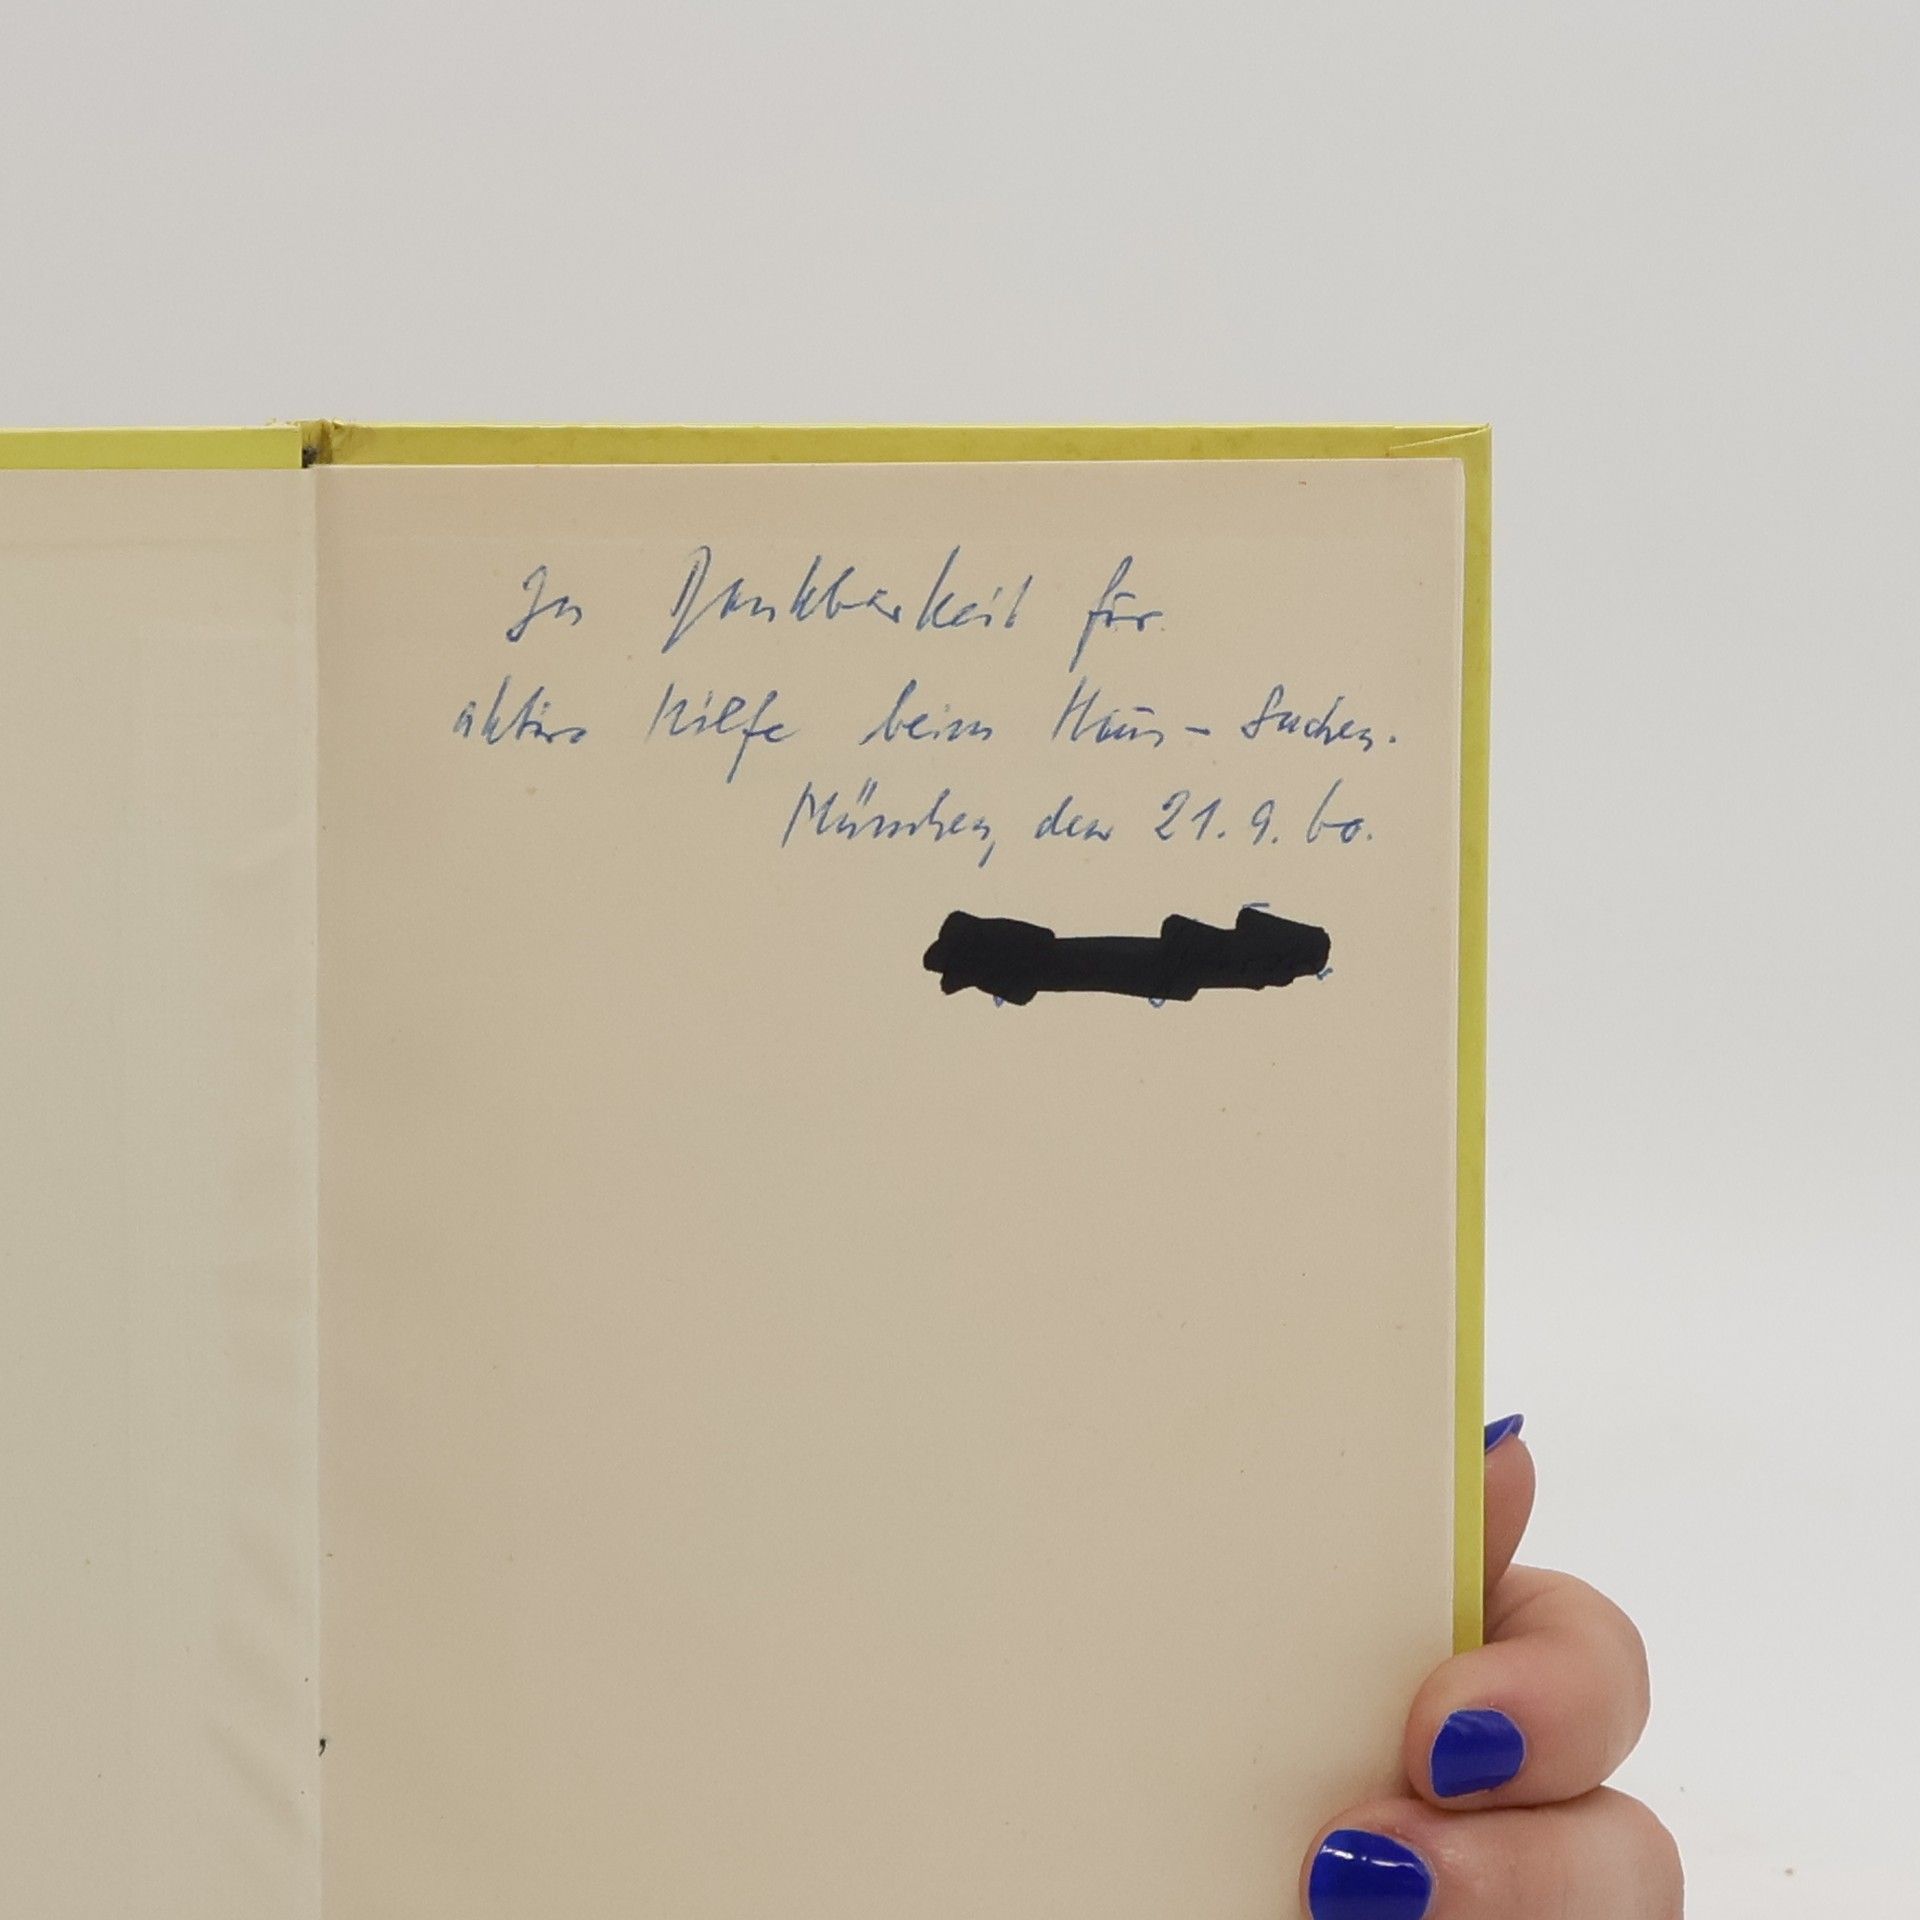 In Dankbarkeit für
aktive Hilfe beim Haus-Suchen.
München, den 21.9.60.